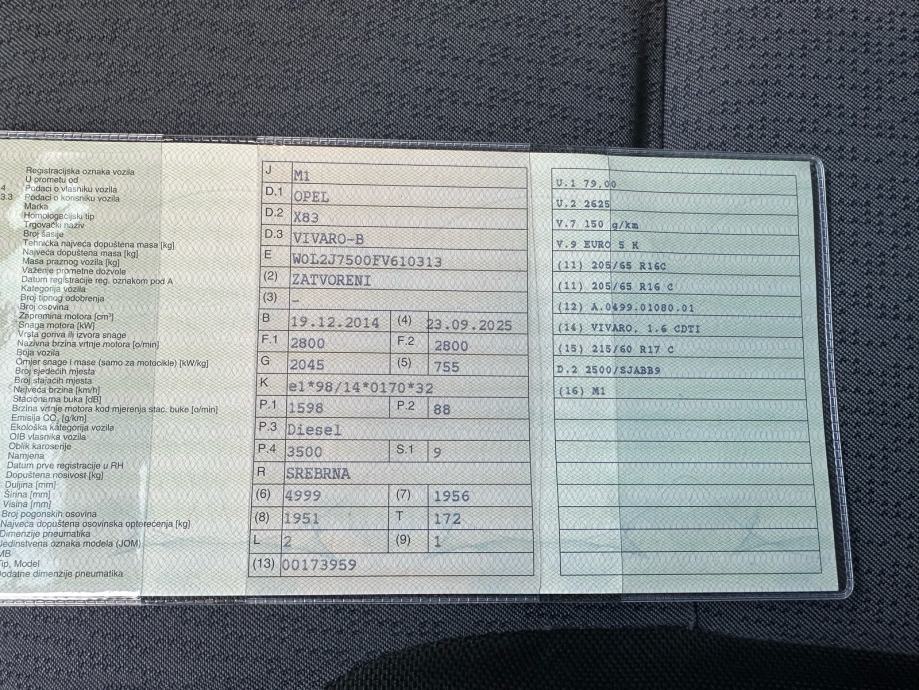 Registracijska oznaka vozila
U prometu od
4 Podaci o vlasniku vozila
3.3 Podaci o korisniku vozila
Marka
Homologacijski tip
Trgovački naziv
Broj šasije
Tehnička najveća dopuštena masa [kg]
Najveća dopuštena masa [kg]
Masa praznog vozila [kg]
Važenje prometne dozvole
Datum registracije reg. oznakom pod A
Kategorija vozila
Broj tipnog odobrenja
Broj osovina
Zapremina motora [cm³]
Snaga motora [kW]
Vrsta goriva ili izvora snage
Nazivna brzina vrtnje motora [o/min]
Boja vozila
Omjer snage i mase (samo za motocikle) [kW/kg]
Broj sjedećih mjesta
Broj stajaćih mjesta
Najveća brzina [km/h]
Stacionarna buka [dB]
Brzina vrtnje motora kod mjerenja stac. buke [o/min]
Emisija CO₂ [g/km]
Ekološka kategorija vozila
OIB vlasnika vozila
Oblik karoserije
Namjena
Datum prve registracije u RH
Dopuštena nosivost [kg]
Duljina [mm]
Širina [mm]
Visina [mm]
Broj pogonskih osovina
Najveća dopuštena osovinska opterećenja [kg]
Dimenzije pneumatika
Jedinstvena oznaka modela (JOM)
MB
Tip, Model
Dodatne dimenzije pneumatika
J M1
D.1 OPEL
D.2 X83
D.3 VIVARO-B
E W0L2J7500FV610313
(2) ZATVORENI
(3) –
B 19.12.2014 (4) 23.09.2025
F.1 2800 F.2 2800
G 2045 (5) 755
K e1*98/14*0170*32
P.1 1598 P.2 88
P.3 Diesel
P.4 3500 S.1 9
R SREBRNA
(6) 4999 (7) 1956
(8) 1951 T 172
L 2 (9) 1
(13) 00173959
U.1 79,00
U.2 2625
V.7 150 g/km
V.9 EURO 5 K
(11) 205/65 R16C
(11) 205/65 R16 C
(12) A.0499.01080.01
(14) VIVARO, 1.6 CDTI
(15) 215/60 R17 C
D.2 2500/SJABB9
(16) M1